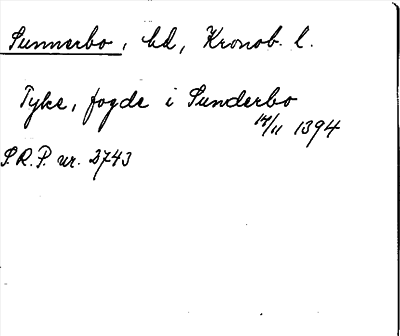 Sunnerbo, hd, Kronob. l.
Tyke, fogde i Sunderbo
14/11 1394
S.R.P. nr. 2743